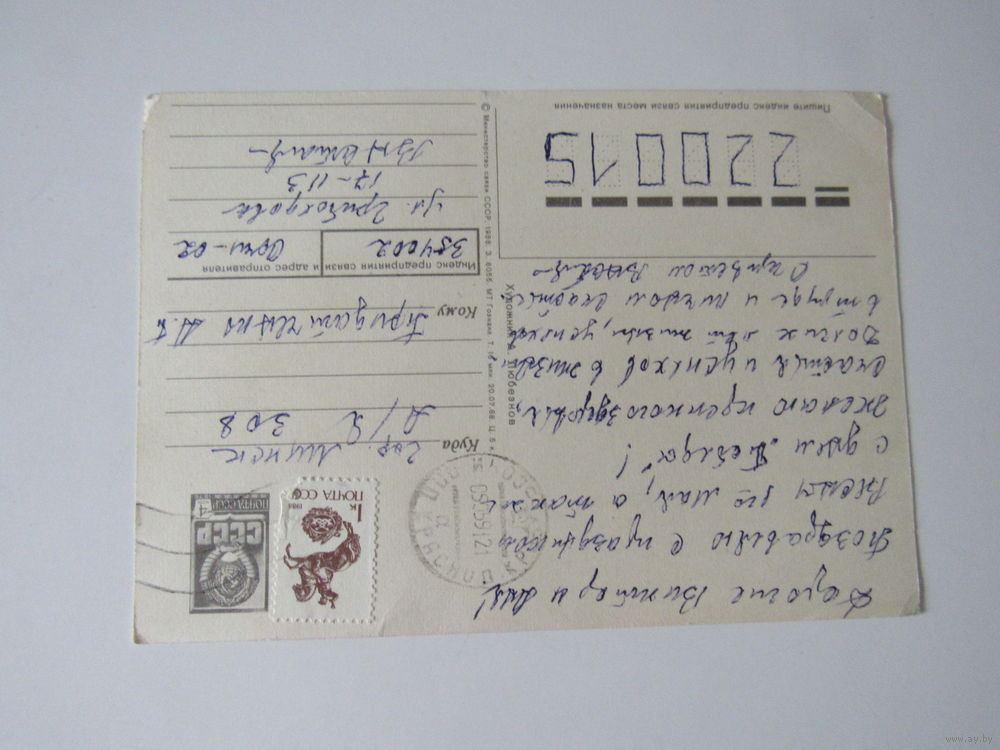 Дорогие Виктор и Аня!
Поздравляю с праздником
Весны 1ое мая, а также
с днем „Победа“!
Желаю крепкого здоровья,
счастья и успехов в жизни
долгих лет жизни, успехов
в труде и личном счастье
С приветом
Художник А. Любезнов
© Министерство связи СССР. 1988. З. 6055. МТ Гознака. Т. 16 млн 20.07.88. Ц. 5 к.
ПОЧТА СССР
1к
1988
ПОЧТА СССР
4к
СССР
Куда
гор. Минск
А/Я
308
Кому
Индекс предприятия связи и адрес отправителя
354002
Сочи-02
ул. Грибоедова
17-113
Пишите индекс предприятия связи места назначения
220015
www.ay.by